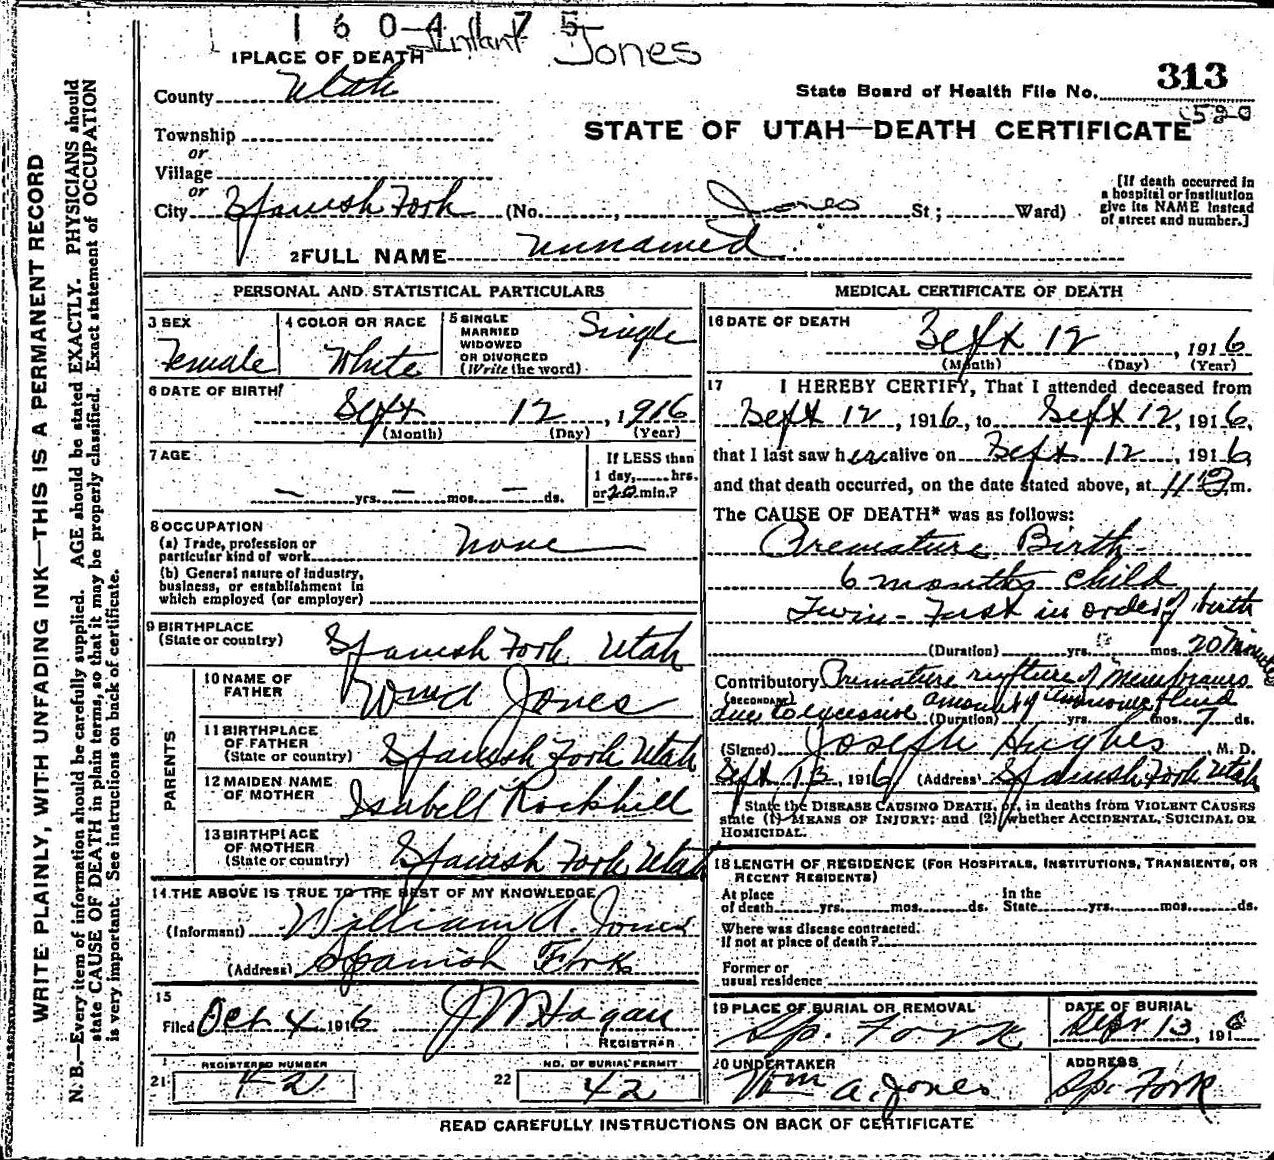 1 6 0 4 1 7 5
Infant Jones
1 PLACE OF DEATH
County Utah
State Board of Health File No. 313
Township
or
Village
or
STATE OF UTAH—DEATH CERTIFICATE
City Spanish Fork (No. , Jones St; Ward)
[If death occurred in
a hospital or institution
give its NAME instead
of street and number.]
2 FULL NAME unnamed
PERSONAL AND STATISTICAL PARTICULARS
3 SEX
Female
4 COLOR OR RACE
White
5 SINGLE
MARRIED
WIDOWED
OR DIVORCED
(Write the word)
Single
6 DATE OF BIRTH
Sept 12, 1916
(Month) (Day) (Year)
7 AGE
— yrs. — mos. — ds.
If LESS than
1 day, hrs.
or 20 min.?
8 OCCUPATION
(a) Trade, profession or
particular kind of work none
(b) General nature of industry,
business, or establishment in
which employed (or employer)
9 BIRTHPLACE
(State or country) Spanish Fork Utah
PARENTS
10 NAME OF
FATHER Wm A Jones
11 BIRTHPLACE
OF FATHER
(State or country) Spanish Fork Utah
12 MAIDEN NAME
OF MOTHER Isabell Rockhill
13 BIRTHPLACE
OF MOTHER
(State or country) Spanish Fork Utah
14 THE ABOVE IS TRUE TO THE BEST OF MY KNOWLEDGE
(Informant) William A. Jones
(Address) Spanish Fork
15
Filed Oct 4 1916 J M Hagan
REGISTRAR
REGISTERED NUMBER
21 42
NO. OF BURIAL PERMIT
22 42
MEDICAL CERTIFICATE OF DEATH
16 DATE OF DEATH
Sept 12, 1916
(Month) (Day) (Year)
17 I HEREBY CERTIFY, That I attended deceased from
Sept 12, 1916, to Sept 12, 1916,
that I last saw her alive on Sept 12, 1916,
and that death occurred, on the date stated above, at m.
The CAUSE OF DEATH* was as follows:
Premature Birth
6 months child
Twin - First in order of birth
(Duration) yrs. mos. 20 minutes
Contributory Premature rupture of membranes
(SECONDARY)
due to excessive amount of amnionic fluid
(Duration) yrs. mos. ds.
(Signed) Joseph Hughes, M. D.
Sept 13, 1916 (Address) Spanish Fork Utah
State the DISEASE CAUSING DEATH, or, in deaths from VIOLENT CAUSES
state (1) MEANS OF INJURY; and (2) whether ACCIDENTAL, SUICIDAL OR
HOMICIDAL.
18 LENGTH OF RESIDENCE (FOR HOSPITALS, INSTITUTIONS, TRANSIENTS, OR
RECENT RESIDENTS)
At place
of death yrs. mos. ds.
In the
State yrs. mos. ds.
Where was disease contracted.
if not at place of death?
Former or
usual residence
19 PLACE OF BURIAL OR REMOVAL
Sp. Fork
DATE OF BURIAL
Sept 13, 1916
20 UNDERTAKER
Wm A. Jones
ADDRESS
Sp. Fork
READ CAREFULLY INSTRUCTIONS ON BACK OF CERTIFICATE
WRITE PLAINLY, WITH UNFADING INK—THIS IS A PERMANENT RECORD
N. B.—Every item of information should be carefully supplied. AGE should be stated EXACTLY. PHYSICIANS should
state CAUSE OF DEATH in plain terms, so that it may be properly classified. Exact statement of OCCUPATION
is very important. See instructions on back of certificate.